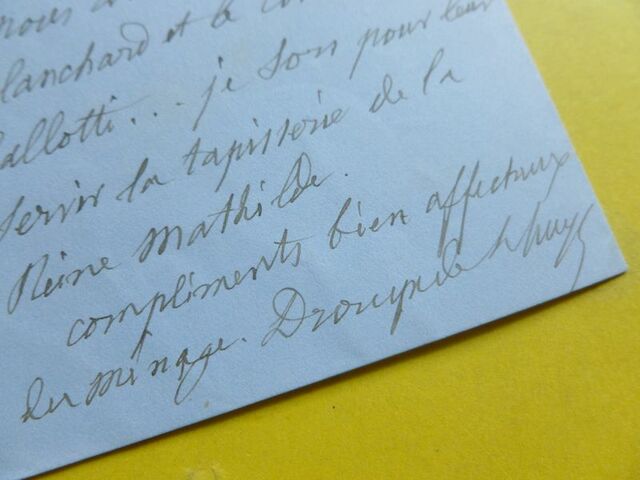 nous
Blanchard et le
Callotti... je sors pour leur
servir la tapisserie de la
Reine Mathilde.
compliments bien affectueux
du ménage. Drouyn de Lhuys